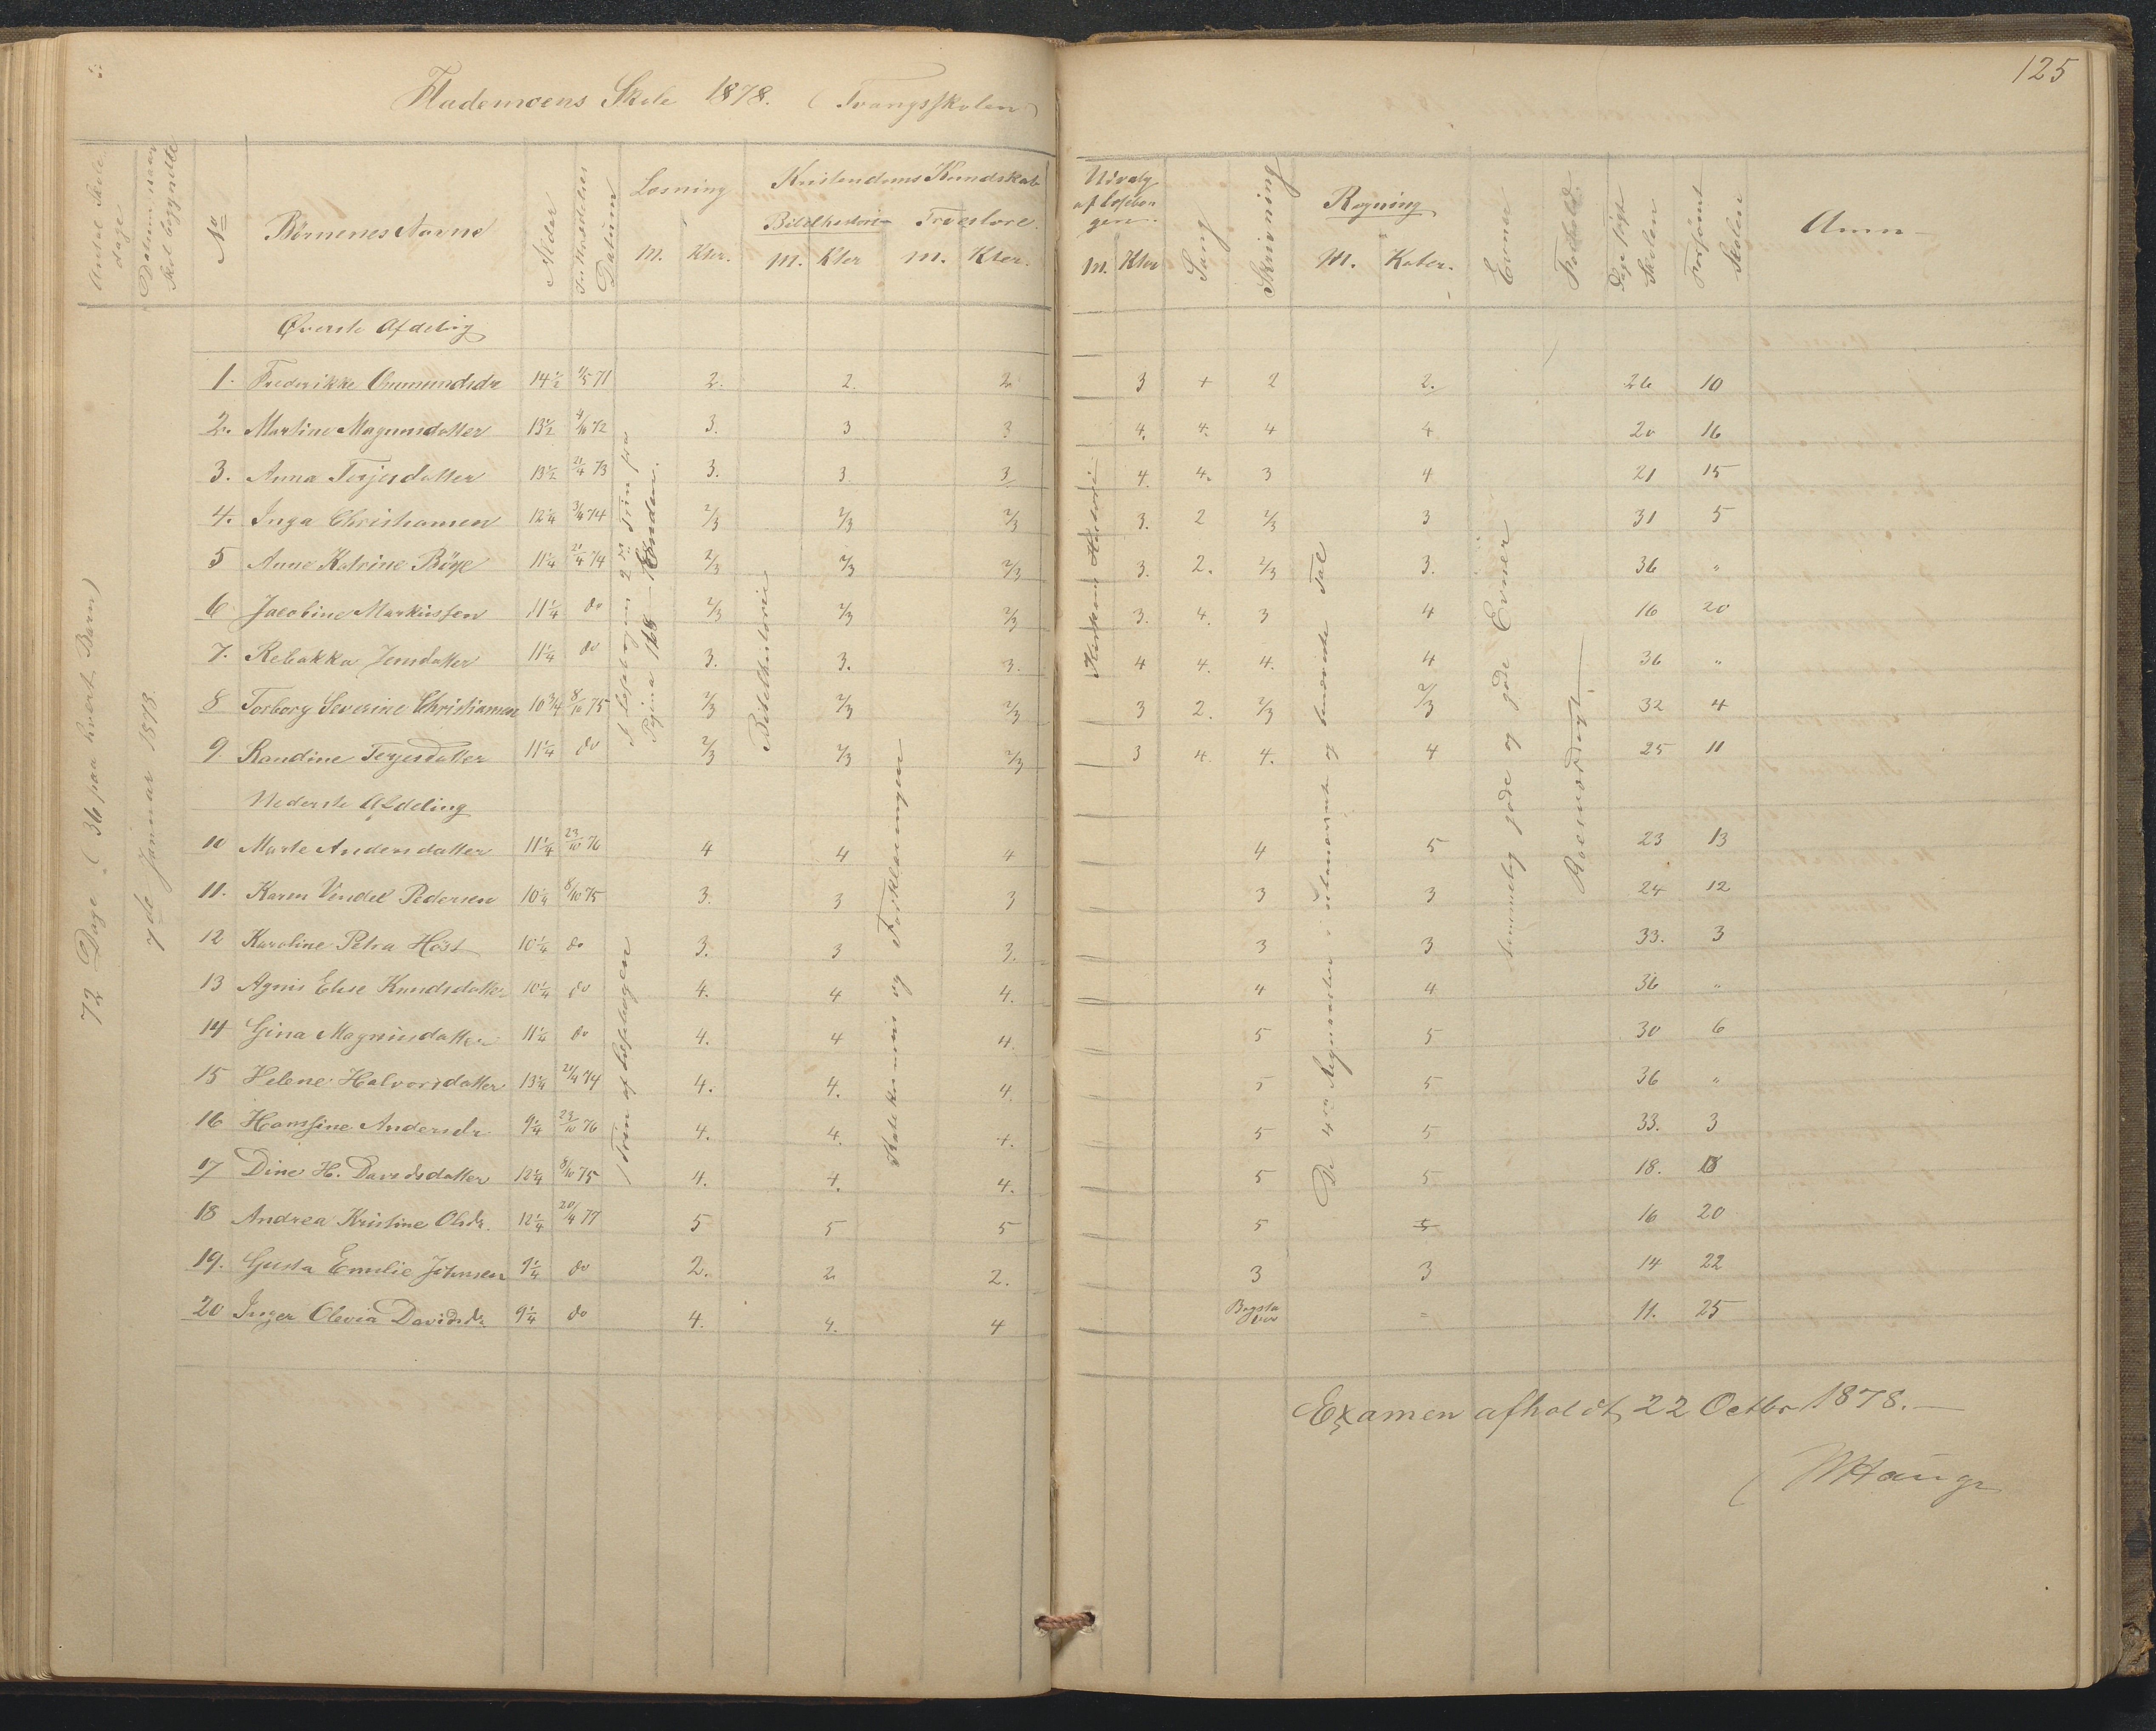 125
Flademoens Skole 1878. (Tvangsskolen)
Antal Skole dage
Datum, naar Skol. begyndte
No
Børnenes Navne
Alder
Datum
Læsning
M. Kter.
Kristendoms Kundskab
Bibelhistorie
M. Kter
Troeslære.
M. Kter.
Udvalg af Læsebogen.
M. Kter
Sang
Skrivning
Regning
M. Kater.
Evner
Forhold
Dage søgt Skolen
Forsømt Skolen
Anm
72 Dage (36 paa hvert Barn)
7de Januar 1878.
Øverste Afdeling
1. Frederikke Omundsdr 14½ 71 2. 2. 2 3 + 2 2. 26 10
2. Martine Magnusdatter 13½ 4/10 72 3. 3 3 4. 4. 4 4 20 16
3. Anna Terjesdatter 13½ 21/4 73 3. 3 3 4. 4. 3 4 21 15
4. Inga Christiansen 12¼ 74 2/3 2/3 2/3 3. 2 2/3 3 31 5
5 Anne Katrine Böye 11¼ 21/4 74 2/3 2/3 2/3 3. 2. 2/3 3. 36 "
6 Jacobine Markussen 11¼ do 2/3 2/3 2/3 3. 4. 3 4 16 20
7. Rebakka Jensdatter 11¼ do 3. 3. 3. 4 4. 4. 4 36 "
8 Torborg Severine Christiansen 10¾ 8/10 75 2/3 2/3 2/3 3 2. 2/3 2/3 32 4
9. Randine Terjesdatter 11¼ do 2/3 2/3 2/3 3 4. 4. 4 25 11
Nederste Afdeling
10 Marte Andersdatter 11¼ 23/10 76 4 4 4 4 5 23 13
11. Karen Vendel Pedersen 10¼ 8/10 75 3. 3 3 3 3 24 12
12 Karoline Petra Höst 10¼ do 3. 3 3. 3 3 33. 3
13 Agnes Elise Knudsdatter 10¼ do 4. 4 4. 4 4 36 "
14 Gina Magnusdatter 11¼ do 4. 4 4. 5 5 30 6
15 Helene Halvorsdatter 13¼ 21/4 74 4. 4. 4. 5 5 36 "
16 Hansine Andersdr 9¼ 23/10 76 4. 4. 4. 5 5 33. 3
17 Dine H. Davidsdatter 12¼ 8/10 75 4. 4. 4. 5 5 18. 18
18 Andrea Kristine Olsdr. 12¼ 20/4 77 5 5 5 5 5 16 20
19. Gusta Emilie Johnsen 9¼ do 2. 2 2. 3 3 14 22
20 Inger Olevia Davidsdr. 9¼ do 4. 4. 4 Bogstaver " 11. 25
I Læsebogen 2det Trin fra Pagina 168 – Enden.
1 Trin af Læsebogen
Bibelhistorie
Katekismus og Forklaringen
Historie
De 4 Regnearter i ubenævnte og benævnte Tal
temmelig gode og gode Evner
Roesværdigt
Examen afholdt 22 Octbr 1878.
MHauge